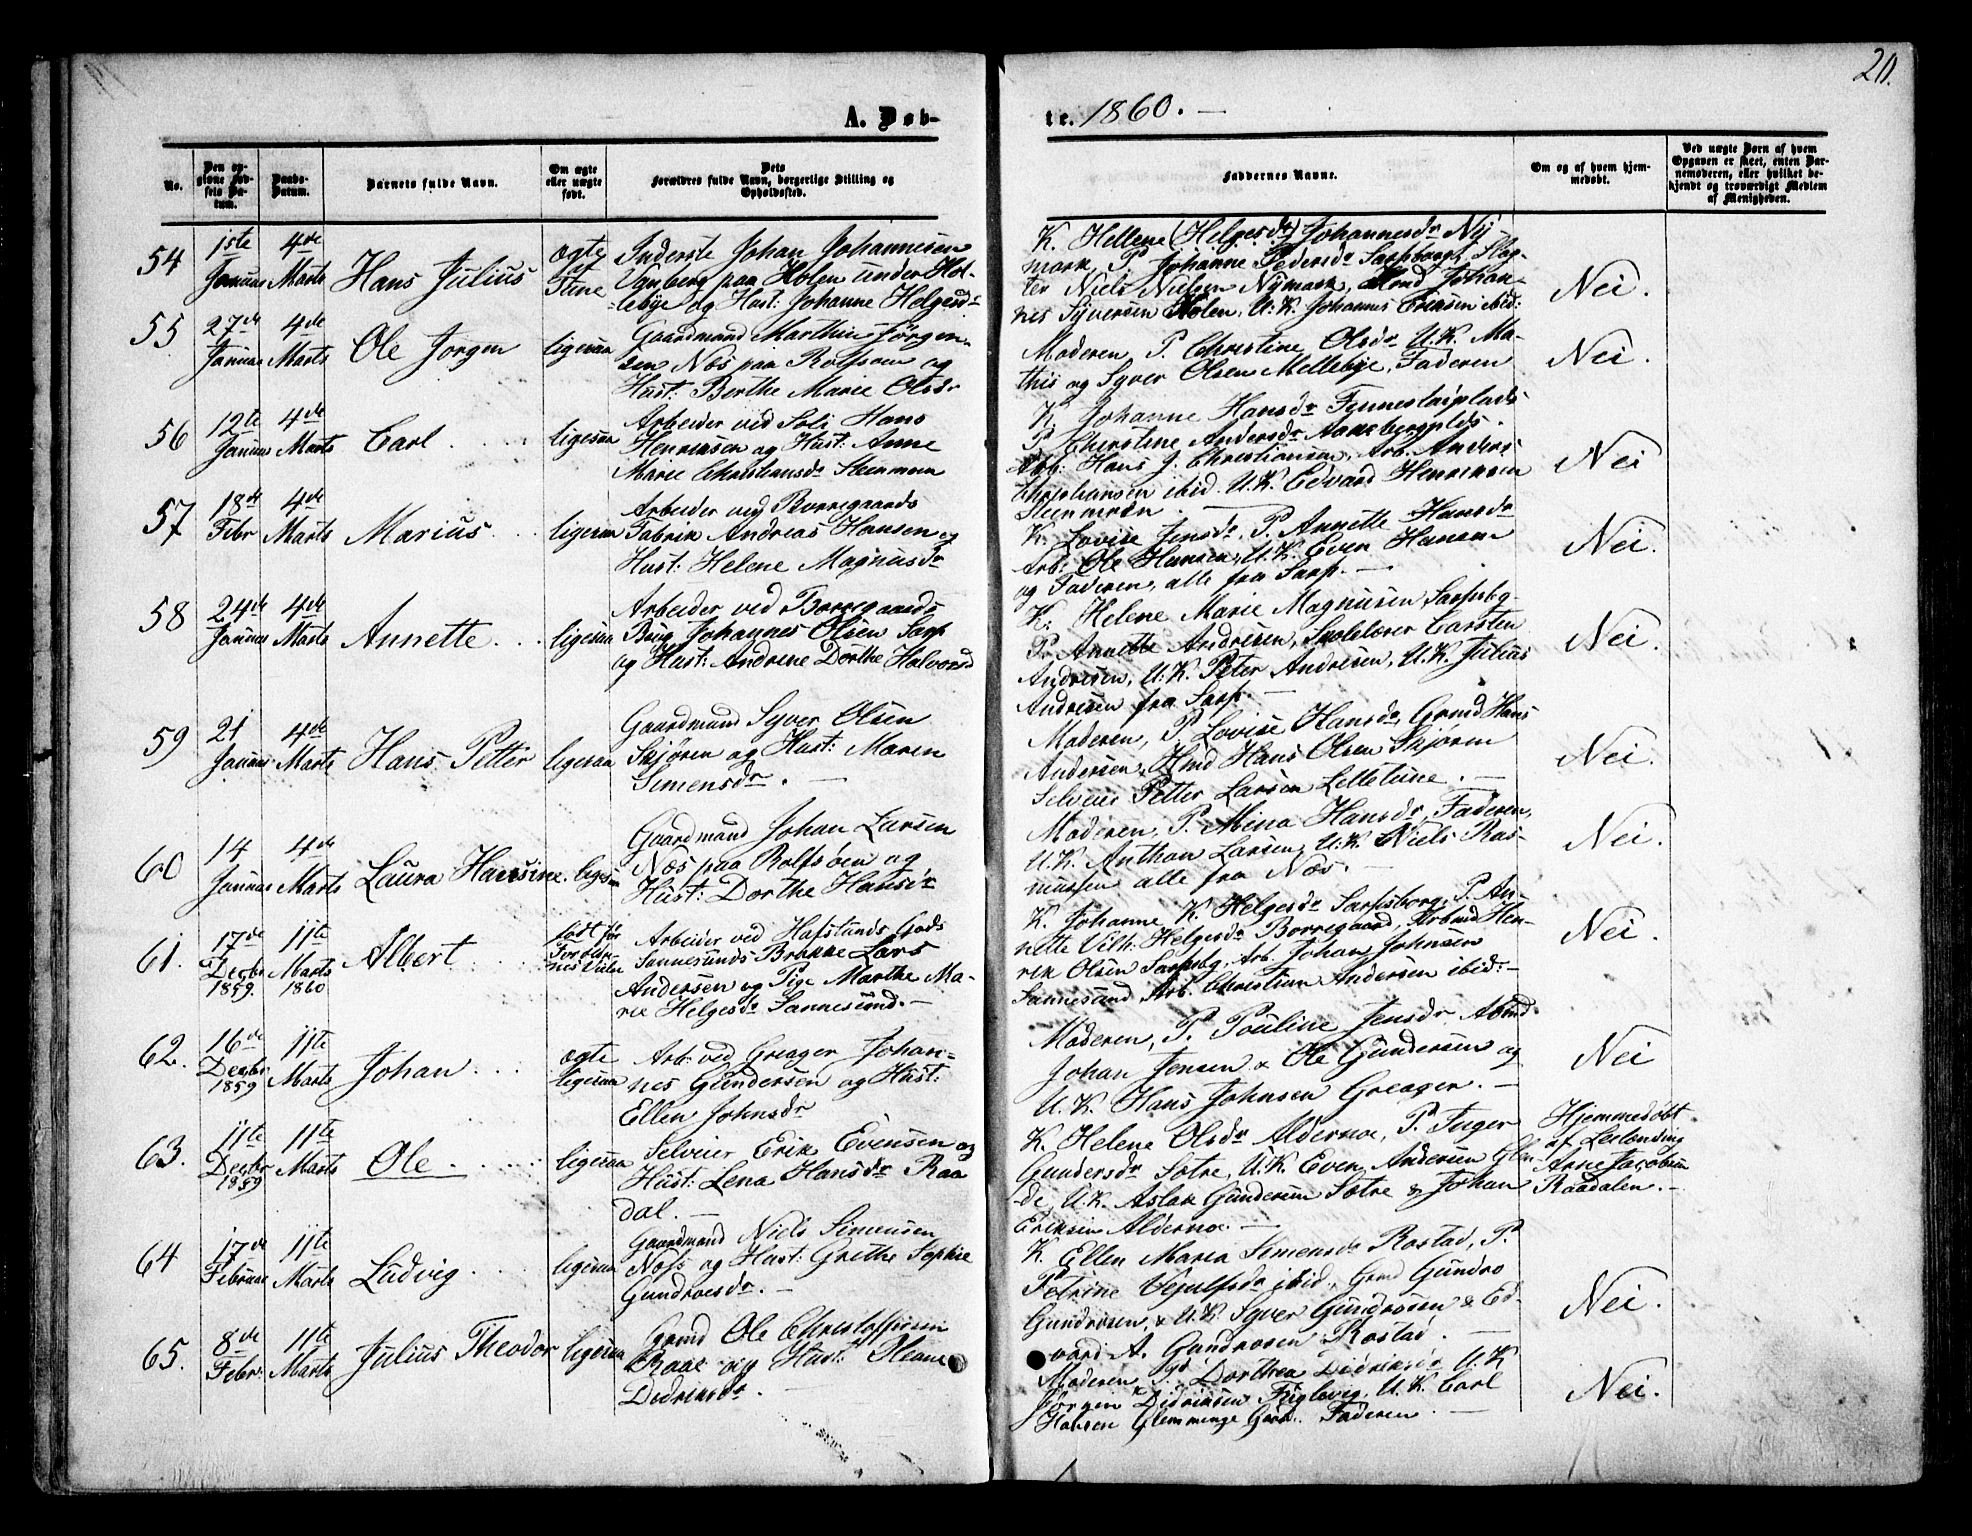 20.
A. Døb-
te. 1860. —
No.
Den op-
givne Fød-
sels Da-
tum.
Daabs-
Datum.
Barnets fulde Navn.
Om ægte
eller uægte
født.
Dets
Forældres fulde Navn, borgerlige Stilling og
Opholdssted.
Faddernes Navne.
Om og af hvem hjem-
medøbt.
Ved uægte Børn af hvem
Opgaven er skeet, enten Bar-
nemoderen, eller hvilket be-
kjendt og troværdigt Medlem
af Menigheden.
54
1ste
Januar
4de
Marts
Hans Julius
ægte
af
Inderste Johan Johannesen
paa Holen under Hol-
lebye og Hust: Johanne Helgesdr
K. Hellene (Helgesdr) Johannesdr Ny-
mark, P. Johanne Pedersdr Sarpsborg, Slag-
ter Niels Nielsen Nymark, Johan-
nes Syversen Holen, U.K. Johannes Eriksen ibid:
Nei.
55
27de
Januar
4de
Marts
Ole Jorgen
ligesaa
Gaardmand Marthin Jørgen-
sen Næs paa Rolfsøen og
Hust: Berthe Marie Olsdr
Moderen, P. Christine Olsdr U.K. Ma-
this og Syver Olsen Mellebye, Faderen
Nei.
56
12te
Januar
4de
Marts
Carl
ligesaa
Arbeider ved Soli Hans
Henriksen og Hust: Anne
Marie Christiansdr Steenmoen
K. Johanne Hansdr
P. Christine Andersdr
Arb: Hans J. Christiansen, Arb. Anders
Christiansen ibid. U.K. Edvard Henriksen
Steenmoen.
Nei
57
18de
Febr
4de
Marts
Marius
ligesaa
Arbeider ved Borregaards
Fabrik Andreas Hansen og
Hust: Helene Magnusdr
K. Lovise Jensdr, P. Annette Hansdr
Arb: Ole Hansen, U.K. Even Hansen
og Faderen, alle fra Sarp. —
Nei.
58
24de
Januar
4de
Marts
Annette
ligesaa
Arbeider ved Borregaards
Brug Johannes Olsen Sarp
og Hust: Andrine Dorthe Halvorsd
K: Helene Marie Magnusen Sarpsbg.
P. Annette Andresen, Skolelærer Carsten
Andresen, U.K. Peter Andresen, U.K. Julius
Andresen fra Sarp. —
Nei.
59
21
Januar
4de
Marts
Hans Petter
ligesaa
Gaardmand Syver Olsen
Skjøren og Hust: Maren
Simensdr. —
Moderen, P. Lovise Hansdr, Grmd Hans
Andersen, Hmd Hans Olsen Skjøren
Selveier Petter Larsen Lilletune. —
Nei.
60
14
Januar
4de
Marts
Laura Hansine.
ligesaa
Gaardmand Johan Larsen
Næs paa Rolfsøen og
Hust: Dorthe Hansdr
Moderen, P. Mina Hansdr, Faderen,
U.K. Anthon Larsen, U.K. Niels Ras-
mussen alle fra Næs. —
Nei.
61.
17de
Decbr
1859.
11te
Marts
1860
Albert
født før
Arbeider ved Hafslunds Gods
Sannesunds Brakke Lars
Andersen og Pige Marthe Ma-
rie Helgesdr Sannesund. —
K. Johanne K. Helgesdr Sarpsborg, P. An-
nette Vilh: Helgesdr Borregaard, Arbmd Hen-
rik Olsen Sarpsbg, Arb. Johan Johnsen
Sannesund Arb. Christian Andersen ibid: —
Nei.
62.
16de
Decbr
1859
11te
Marts
Johan
ægte
ligesaa
Arb: ved Greager Johan-
nes Gundersen og Hust:
Ellen Johnsdr
Moderen, P. Pouline Jensdr,
Johan Jensen & Ole Gundersen og
U.K. Hans Johnsen Greager. —
Nei
63.
11te
Decbr
1859
11te
Marts
Ole.
ligesaa
Selveier Erik Evensen og
Hust: Lena Hansdr Raa
dal. —
K. Helene Olsdr Aldernæ, P. Inger
Gundersdr Søtre, U.K. Even Andersen Glen-
de, U.K. Aslak Gundersen Søtre & Johan
Eriksen Aldernæ. —
Hjemmedøbt
af Leilending
Arne Jacobsen
Raadalen. —
64
17de
Februar
11te
Marts
Ludvig
ligesaa
Gaardmand Niels Simensen
Næss og Hust: Grethe Sophie
Gundroesdr. —
K. Ellen Maria Simensdr Rostad, P.
Petrine Vejulfsdr ibid, Grmd Gundro
Gundrosen, & U.K. Syver Gundrosen & Ed-
vard A. Gundrosen Rostad. —
Nei.
65.
8de
Febr.
11te
Marts
Julius Theodor
ligesaa
Grmd Ole Christoffersen
Raae og Hust:
Didriksdr. —
Moderen P. Dorthea Didriksdr U.K.
Jørgen Didriksen Fuglevig, U.K. Carl
Hansen Glemminge Faderen. —
Nei.